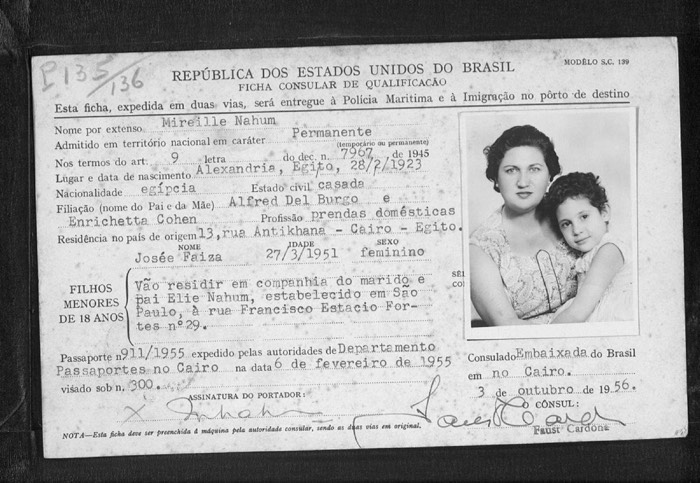 P 135/136
REPÚBLICA DOS ESTADOS UNIDOS DO BRASIL
MODÊLO S.C. 139
FICHA CONSULAR DE QUALIFICAÇÃO
Esta ficha, expedida em duas vias, será entregue à Polícia Marítima e à Imigração no pôrto de destino
Nome por extenso Mireille Nahum
Admitido em território nacional em caráter Permanente
(temporário ou permanente)
Nos termos do art. 9 letra do dec. n. 7967, de 1945
Lugar e data de nascimento Alexandria, Egito, 28/2/1923
Nacionalidade egípcia Estado civil casada
Filiação (nome do Pai e da Mãe) Alfred Del Burgo e
Enrichetta Cohen Profissão prendas domésticas
Residência no país de origem 13, rua Antikhana - Cairo - Egito.
NOME IDADE SEXO
Josée Faiza 27/3/1951 feminino
FILHOS
MENORES
DE 18 ANOS
Vão residir em companhia do marido e
pai Elie Nahum, estabelecido em São
Paulo, à rua Francisco Estacio For-
tes nº29.
Passaporte nº 911/1955 expedido pelas autoridades de Departamento
Passaportes no Cairo na data 6 de fevereiro de 1955
visado sob n. 300.
ASSINATURA DO PORTADOR:
Consulado Embaixada do Brasil
em no Cairo.
3 de outubro de 1956.
O CÔNSUL:
Faust Cardona
NOTA—Esta ficha deve ser preenchida à máquina pela autoridade consular, sendo as duas vias em original.